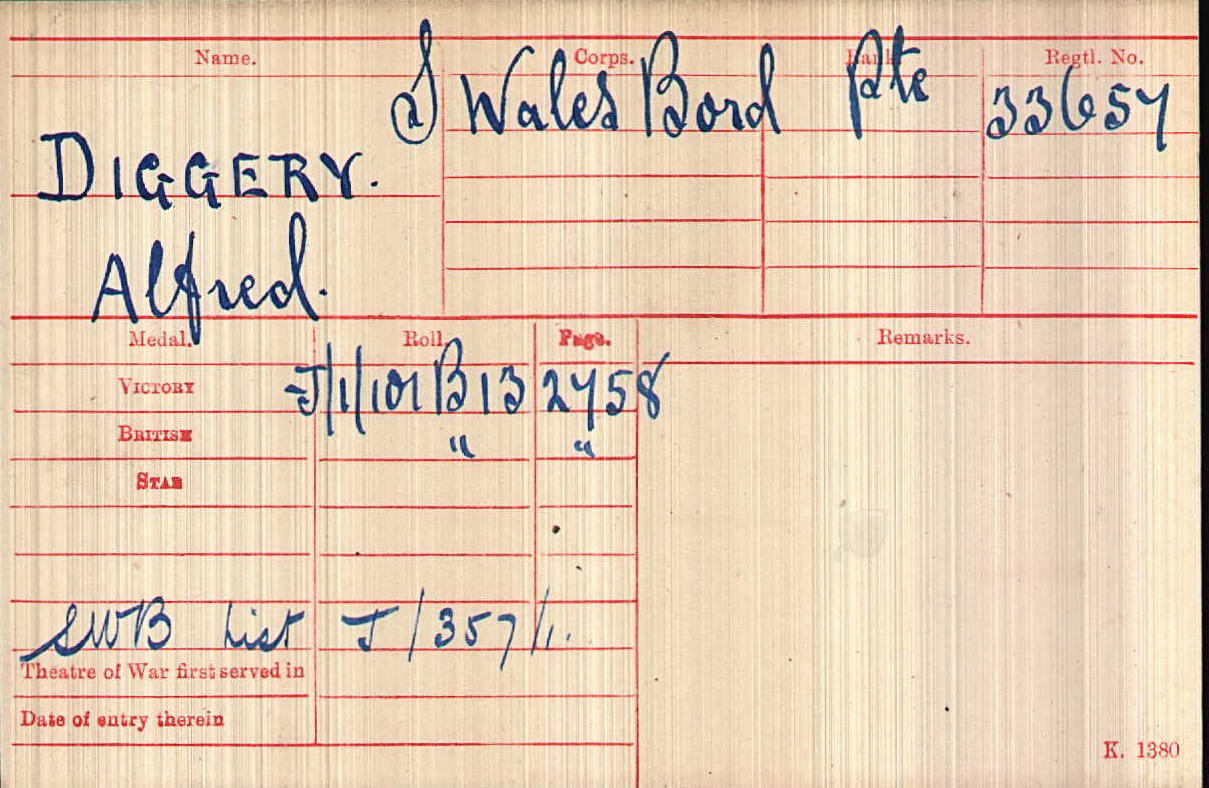 Name. Corps. Rank Regtl. No.
S Wales Bord Pte 33657
DIGGERY.
Alfred.
Medal. Roll. Page. Remarks.
VICTORY J/1/101 B13 2758
BRITISH " "
STAR
SWB List J/357/1.
Theatre of War first served in
Date of entry therein
K. 1380